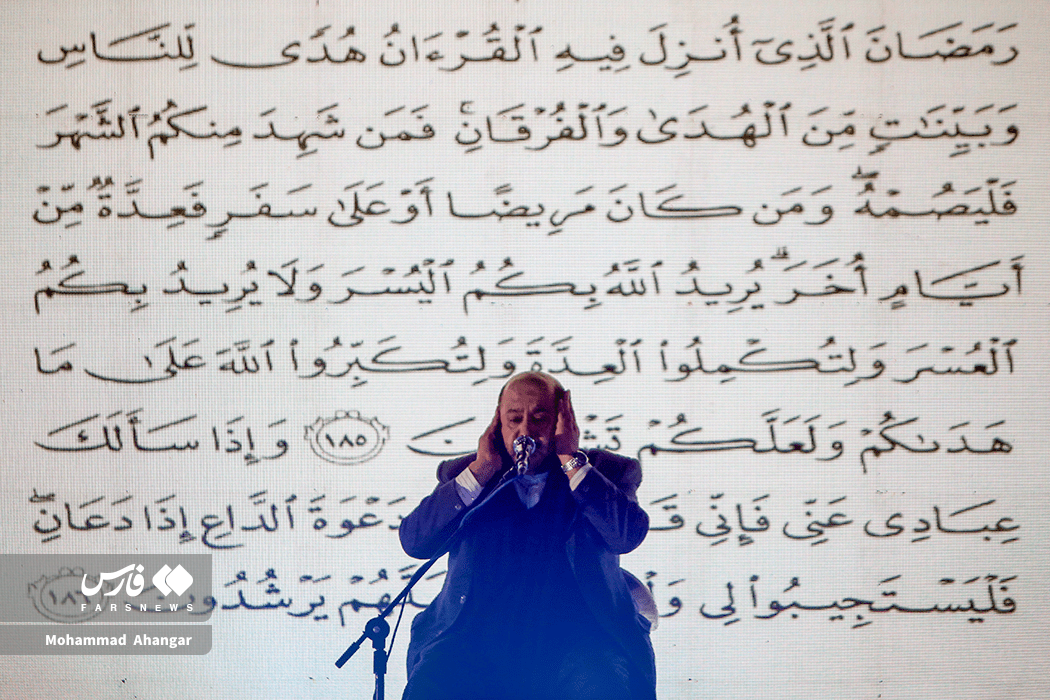 رَمَضَانَ ٱلَّذِىٓ أُنزِلَ فِيهِ ٱلْقُرْءَانُ هُدًى لِّلنَّاسِ
وَبَيِّنَٰتٍ مِّنَ ٱلْهُدَىٰ وَٱلْفُرْقَانِ ۚ فَمَن شَهِدَ مِنكُمُ ٱلشَّهْرَ
فَلْيَصُمْهُ ۖ وَمَن كَانَ مَرِيضًا أَوْ عَلَىٰ سَفَرٍ فَعِدَّةٌ مِّنْ
أَيَّامٍ أُخَرَ ۗ يُرِيدُ ٱللَّهُ بِكُمُ ٱلْيُسْرَ وَلَا يُرِيدُ بِكُمُ
ٱلْعُسْرَ وَلِتُكْمِلُوا۟ ٱلْعِدَّةَ وَلِتُكَبِّرُوا۟ ٱللَّهَ عَلَىٰ مَا
هَدَىٰكُمْ وَلَعَلَّكُمْ ١٨٥ وَإِذَا سَأَلَكَ
عِبَادِى عَنِّى فَإِنِّى دَعْوَةَ ٱلدَّاعِ إِذَا دَعَانِ ۖ
فَلْيَسْتَجِيبُوا۟ لِى يَرْشُدُونَ ١٨٦
فارس
FARSNEWS
Mohammad Ahangar